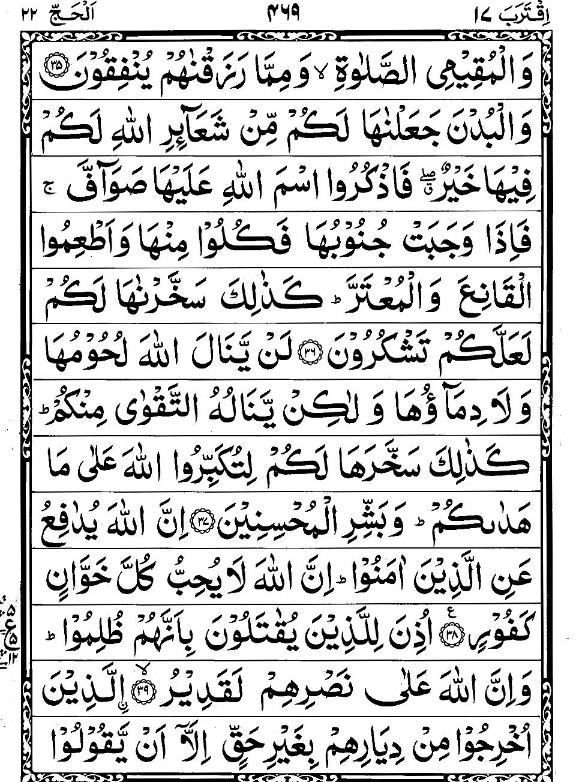 اِقْتَرَبَ ١٧ ٤٦٩ اَلْحَجّ ٢٢
وَالْمُقِيْمِي الصَّلٰوةِ ۙ وَمِمَّا رَزَقْنٰهُمْ يُنْفِقُوْنَ ﴿٣٥﴾
وَالْبُدْنَ جَعَلْنٰهَا لَكُمْ مِّنْ شَعَآئِرِ اللّٰهِ لَكُمْ
فِيْهَا خَيْرٌ ۖ فَاذْكُرُوا اسْمَ اللّٰهِ عَلَيْهَا صَوَآفَّ ۚ
فَاِذَا وَجَبَتْ جُنُوْبُهَا فَكُلُوْا مِنْهَا وَاَطْعِمُوا
الْقَانِعَ وَالْمُعْتَرَّ ؕ كَذٰلِكَ سَخَّرْنٰهَا لَكُمْ
لَعَلَّكُمْ تَشْكُرُوْنَ ﴿٣٦﴾ لَنْ يَّنَالَ اللّٰهَ لُحُوْمُهَا
وَلَا دِمَآؤُهَا وَلٰكِنْ يَّنَالُهُ التَّقْوٰى مِنْكُمْ ؕ
كَذٰلِكَ سَخَّرَهَا لَكُمْ لِتُكَبِّرُوا اللّٰهَ عَلٰى مَا
هَدٰىكُمْ ؕ وَبَشِّرِ الْمُحْسِنِيْنَ ﴿٣٧﴾ اِنَّ اللّٰهَ يُدٰفِعُ
عَنِ الَّذِيْنَ اٰمَنُوْا ؕ اِنَّ اللّٰهَ لَا يُحِبُّ كُلَّ خَوَّانٍ
كَفُوْرٍ ﴿٣٨﴾ ع اُذِنَ لِلَّذِيْنَ يُقٰتَلُوْنَ بِاَنَّهُمْ ظُلِمُوْا ؕ
وَاِنَّ اللّٰهَ عَلٰى نَصْرِهِمْ لَقَدِيْرُ ﴿٣٩﴾ ۙ الَّذِيْنَ
اُخْرِجُوْا مِنْ دِيَارِهِمْ بِغَيْرِ حَقٍّ اِلَّآ اَنْ يَّقُوْلُوْا